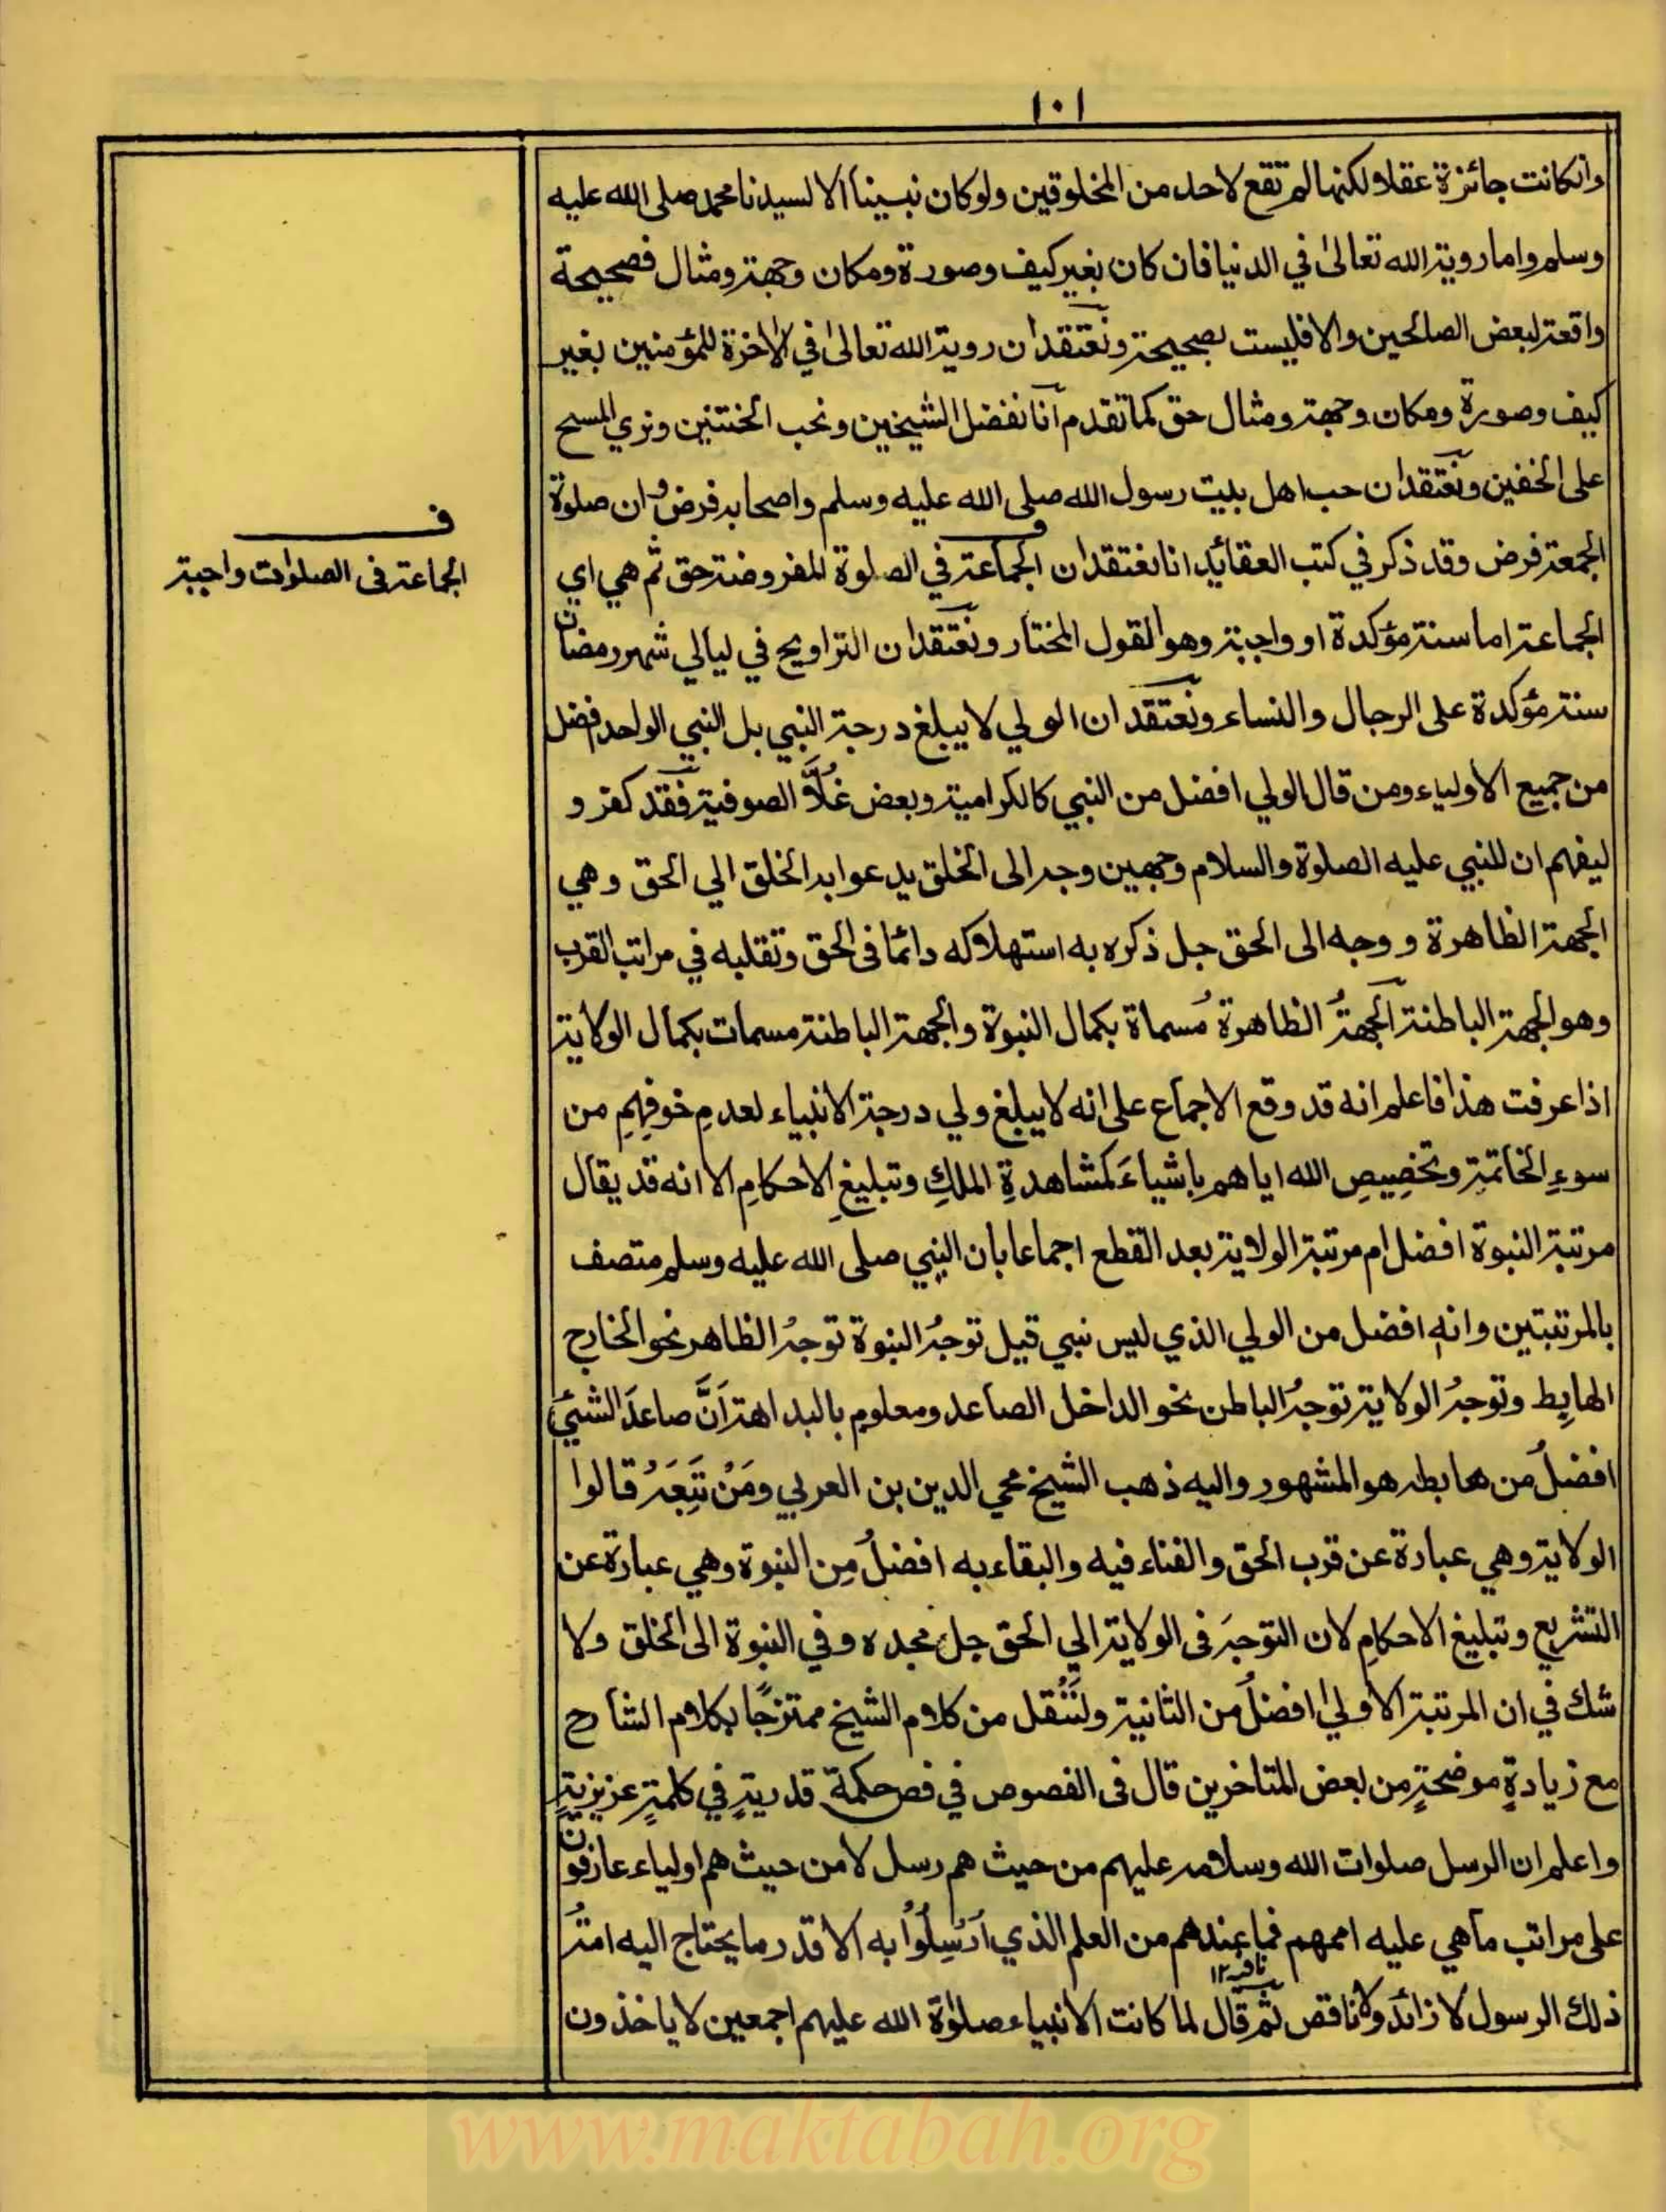 ١٠١
وانكانت جائزة عقلا ولكنها لم تقع لاحد من المخلوقين ولو كان نبيينا الا لسيدنا محمد صلى الله عليه
وسلم واما روية الله تعالىٰ في الدنيا فان كان بغير كيف وصورة ومكان وجهة ومثال فصحيحة
واقعة لبعض الصالحين والا فليست بصحيحة ونعتقد ان روية الله تعالىٰ في الاٰخرة للمؤمنين بغير
كيف وصورة ومكان وجهة ومثال حق كما تقدم انا نفضل الشيخين ونحب الختنين ونري المسح
على الخفين ونعتقد ان حب اهل بيت رسول الله صلى الله عليه وسلم واصحابه فرض وان صلوة
الجمعة فرض وقد ذكر في كتب العقائد انا نعتقد ان الجماعة في الصلوة المفروضة حق ثم هي اي
ف
الجماعة فى الصلوات واجبة
الجماعة اما سنة مؤكدة او واجبة وهو القول المختار ونعتقد ان التراويح في ليالي شهر رمضان
سنة مؤكدة على الرجال والنساء ونعتقد ان الولي لا يبلغ درجة النبي بل النبي الواحد افضل
من جميع الاولياء ومن قال الولي افضل من النبي كالكرامية وبعض غُلاَّ الصوفية فقد كفر و
ليفهم ان للنبي عليه الصلوة والسلام وجهين وجه الى الخلق يدعوا به الخلق الي الحق وهي
الجهة الظاهرة و وجه الى الحق جل ذكره به استهلاكه دائما فى الحق وتقلبه في مراتب القرب
وهو الجهة الباطنة الجهةُ الظاهرة مُسماة بكمال النبوة والجهة الباطنة مسمات بكمال الولاية
اذا عرفت هذا فاعلم انه قد وقع الاجماع على انه لا يبلغ ولي درجة الانبياء لعدمِ خوفِهِمِ من
سوءِ الخاتمةِ وتخصِيصِ الله اياهم باشياءَ كمشاهدةِ الملكِ وتبليغِ الاحكامِ الا انه قد يقال
مرتبة النبوة افضل ام مرتبة الولاية بعد القطع اجماعا بان النبي صلى الله عليه وسلم متصف
بالمرتبتين وانه افضل من الولي الذي ليس نبي قيل توجهُ النبوة توجهُ الظاهر نحو الخارج
الهابِط وتوجهُ الولاية توجهُ الباطن نحو الداخل الصاعد ومعلوم بالبداهة اَنَّ صاعدَ الشيئِ
افضلُ من هابطه هو المشهور واليه ذهب الشيخ محي الدين بن العربي ومَنْ تَبِعَهُ قالوا
الولاية وهي عبارة عن قرب الحق والفناء فيه والبقاء به افضلُ مِن النبوة وهي عبارة عن
التشريع وتبليغ الاحكامِ لان التوجهَ فى الولاية الي الحق جل مجده وفي النبوة الى الخلق ولا
شك في ان المرتبة الاولىٰ افضلُ من الثانية ولنَنْقل من كلام الشيخ ممتزجًا بكلام الشارح
مع زيادةٍ موضحةٍ من بعض المتاخرين قال فى الفصوص في فص حكمة قدريةٍ في كلمةٍ عزيزيةٍ
واعلم ان الرسل صلوات الله وسلامه عليهم من حيث هم رسل لا من حيث هم اولياء عارفون
على مراتب ما هي عليه اممهم فما عندهم من العلم الذي اُرْسِلُوْا به الا قدر ما يحتاج اليه امةُ
ذلك الرسول لا زائد ولا ناقص ثم قال لما كانت الانبياء صلوٰة الله عليهم اجمعين لا ياخذون
www.maktabah.org